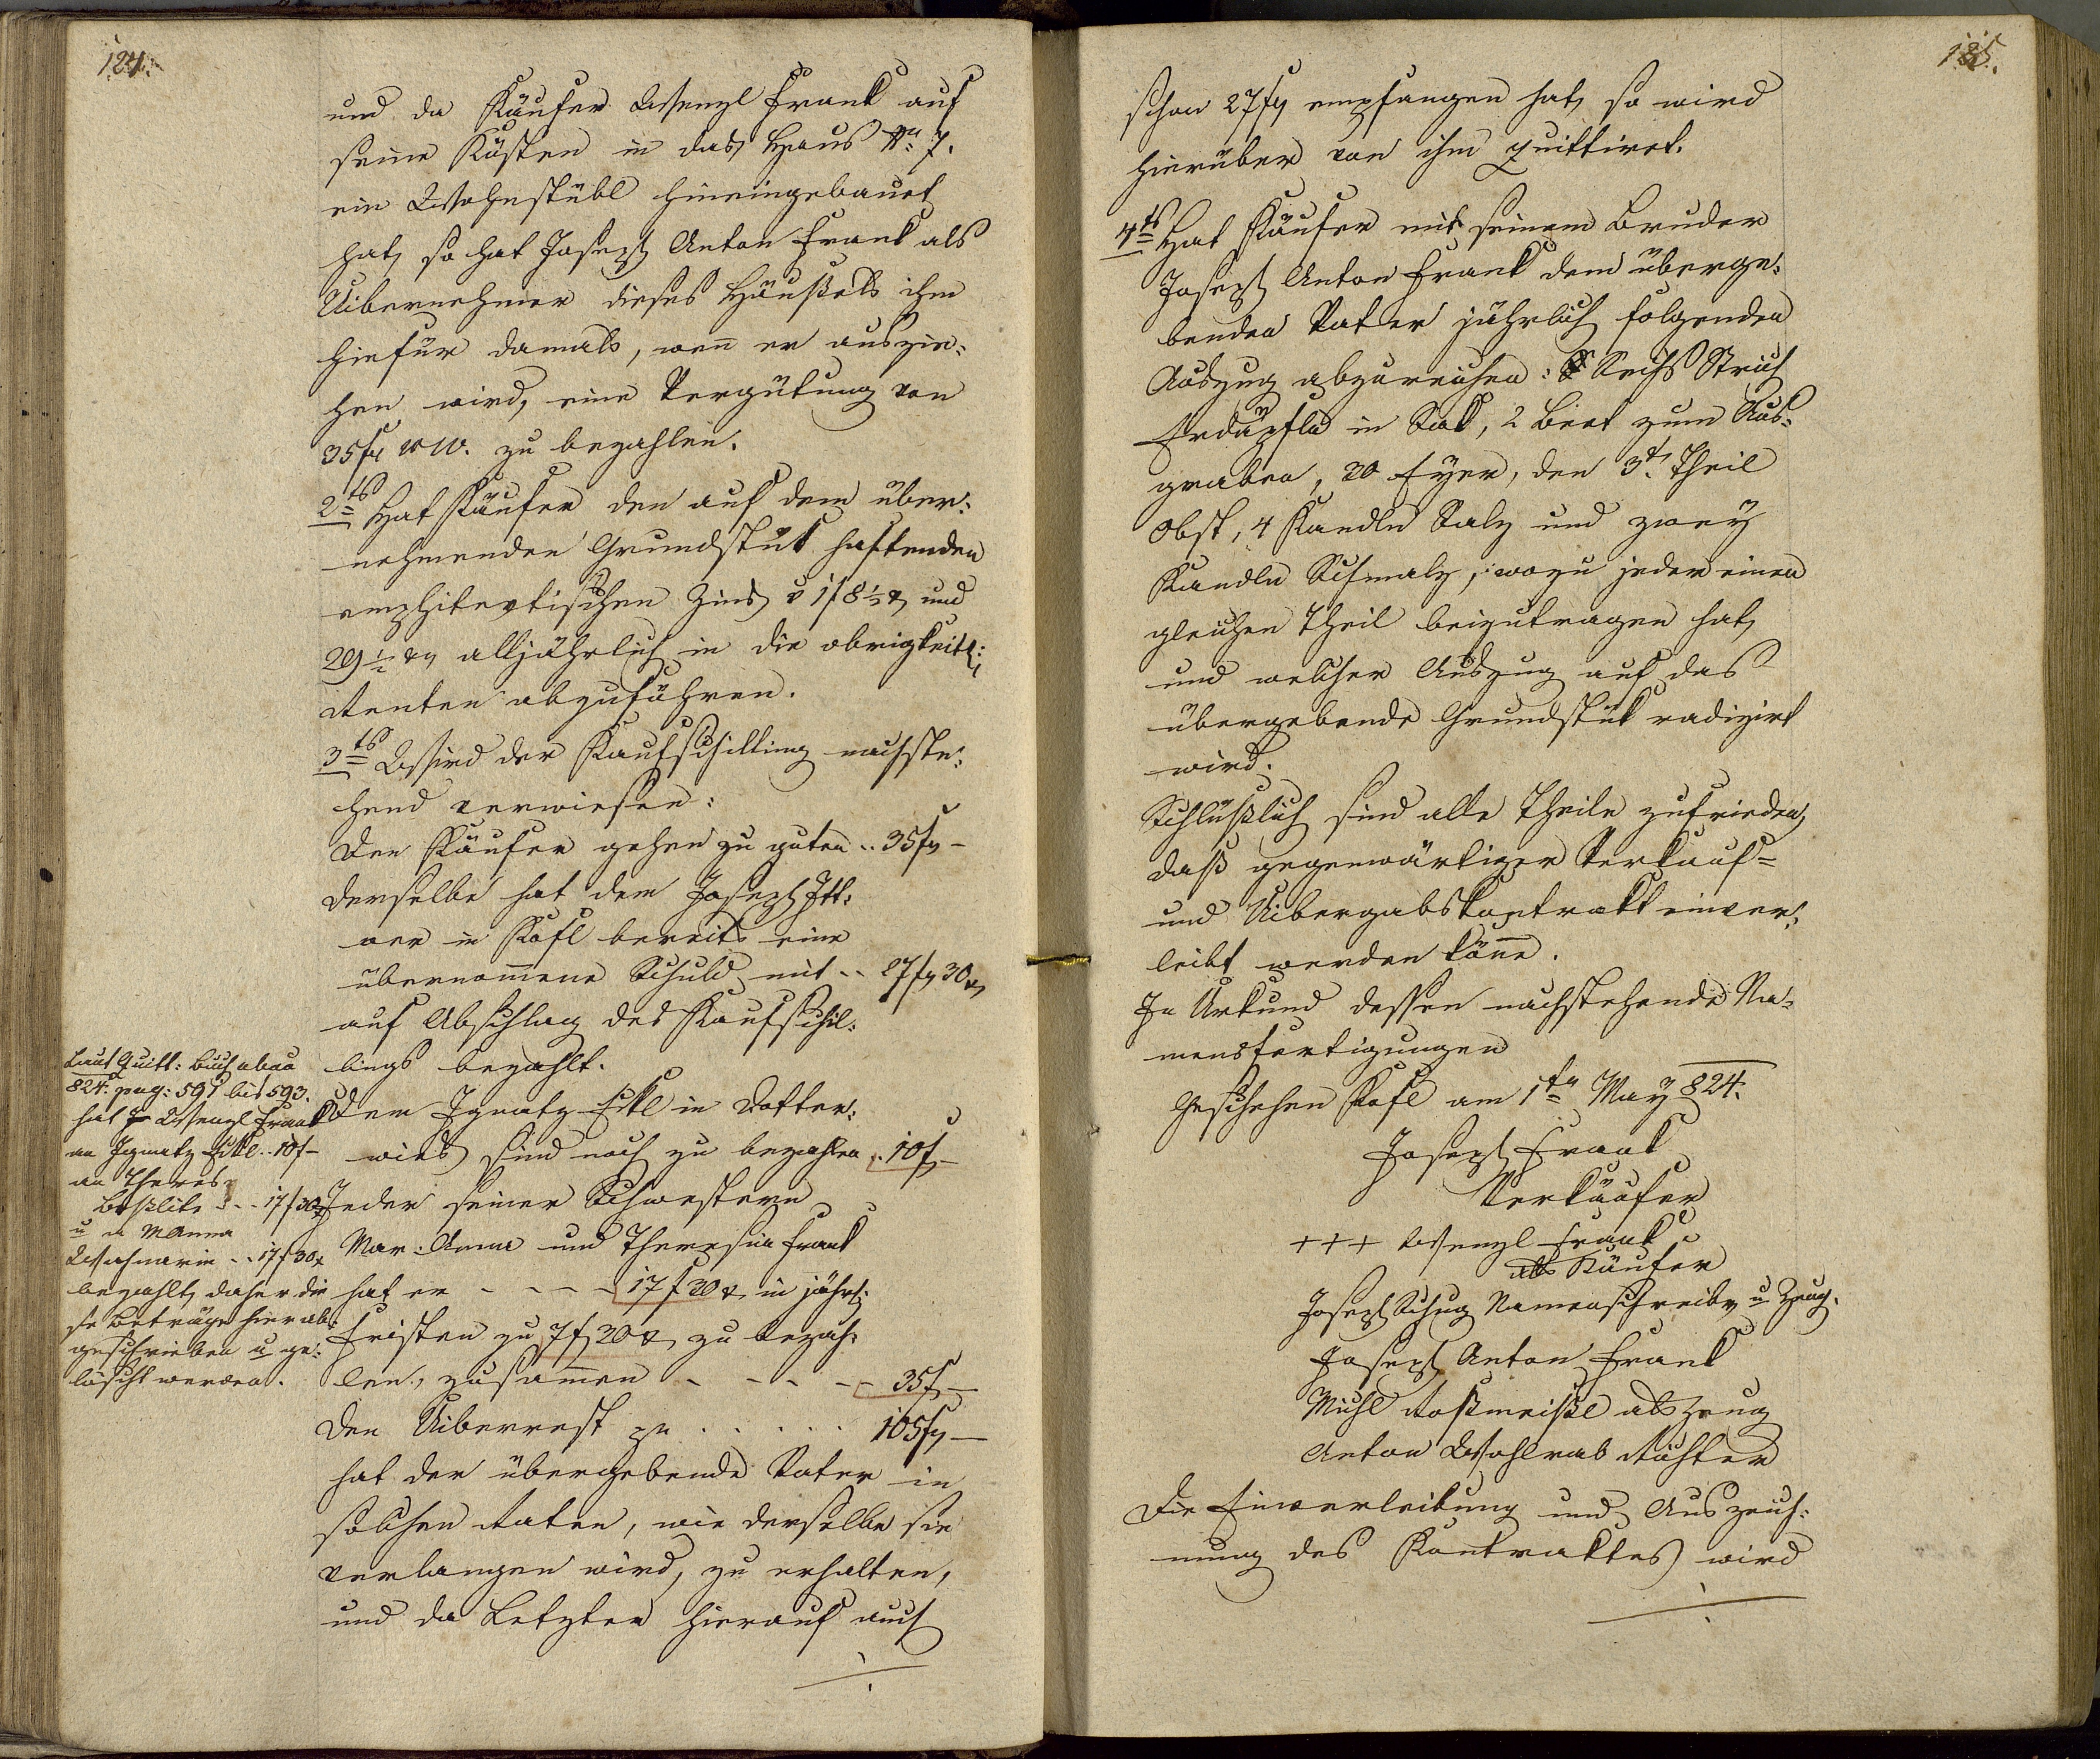 124.
und da Käufer Wenzl Frank auf
seine Kosten in das Haus No 7.
ein Wohnstübl hineingebauet
hat, so hat Joseph Anton Frank als
Uibernehmer dieses Häußels ihm
hiefür damals, wenn er auszie:
hen wird, eine Vergütung von
35 fl WW. zu bezahlen.
2tens Hat Käufer den auf dem über:
nehmenden Grundstük haftenden
emphitevtischen Zins v 1 f 8 1/2 x und
29 1/2 x alljährlich in die obrigkeitl:
Renten abzuführen.
3tens Wird der Kaufschilling nachste:
hend verwiesen:
Den Käufer gehen zu guten .. 35 fl –
Derselbe hat dem Joseph Itt:
ner in Kösl bereits eine
übernommene Schuld mit .. 27 fl 30 x
auf Abschlag des Kaufschil:
lings bezahlt.
Dem Ignatz Eckl in Dotter:
wies sind noch zu bezahlen .. 10 f –
Jeder seiner Schwestern
Mar: Anna und Theresia Frank
hat er - - - - 17 f 30 x in jährl:
Fristen zu 7 f 30 x zu bezah:
len, zusammen - - - - 35 f –
Den Uiberrest pr . . . . . 105 fl –
hat der übergebende Vater in
solchen Raten, wie derselbe sie
verlangen wird, zu erhalten,
und da Letzter hierauf auch
Laut Quitt: Buch
824. pag: 591 bis 593.
hat Wenzl Frank
an Ignatz Eckl .. 10 f –
an Theres:
.. 17 f 30 x
u an MAnna
.. 17 f 30 x
bezahlt, daher die
se Beträge hier ab
geschrieben u ge:
löscht werden.
125.
schon 27 fl empfangen hat, so wird
hierüber von ihm quittiret.
4tens Hat Käufer mit seinem Bruder
Joseph Anton Frank dem überge:
benden Vater jährlich folgenden
Auszug abzureichen: Sechs Strich
Erdäpfln in Sak, 2 Beet zum Aus:
graben, 20 Eyer, den 3t. Theil
Obst, 4 Kandln Salz und zwey
Kandln Schmalz, wozu jeder einen
gleichen Theil beizutragen hat,
und welcher Auszug auf das
übergebende Grundstük radizirt
wird.
Schlüßlich sind alle Theile zufrieden,
daß gegenwärtiger Verkauf=
und Uibergabskontrakt einver:
leibt werden könne.
In Urkund dessen nachstehende Na:
mensfertigungen
Geschehen Kösl am 1ten May 824.
Joseph Frank
Verkäufer
+++ Wenzl Frank
als Käufer
Joseph Schug Namenschreiber u Zeug.
Joseph Anton Frank
Michl Roßmeißl als Zeug
Anton Wohlrab Richter
Die Einverleibung und Auszeich:
nung des Kontraktes wird